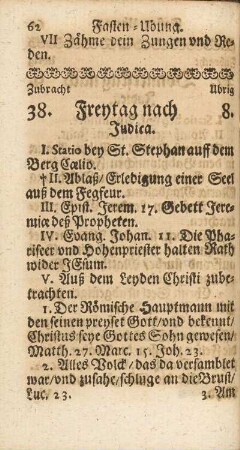 62 Fasten-Ubung.
VII Zähme dein Zungen vnd Re-
den.
Zubracht Ubrig
38. Freytag nach 8.
Judica.
I. Statio bey St. Stephan auff dem
Berg Cœlio.
†II. Ablaß/ Erledigung einer Seel
auß dem Fegfeur.
III. Epist. Jerem. 17. Gebett Jere-
miæ deß Propheten.
IV. Evang. Johan. 11. Die Pha-
riseer vnd Hohenpriester halten Rath
wider JEsum.
V. Auß dem Leyden Christi zube-
trachten.
1. Der Römische Hauptmann mit
den seinen preyset Gott/ vnd bekennt/
Christus seye Gottes Sohn gewesen/
Matth. 27. Marc. 15. Joh. 23.
2. Alles Volck/ das da versamblet
war/ vnd zusahe/ schluge an die Brust/
Luc. 23. 3. Am